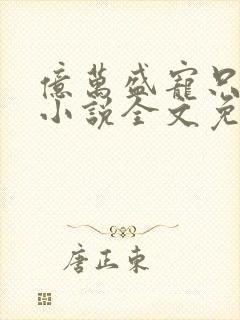 億萬盛寵只
小說全文免
唐正東